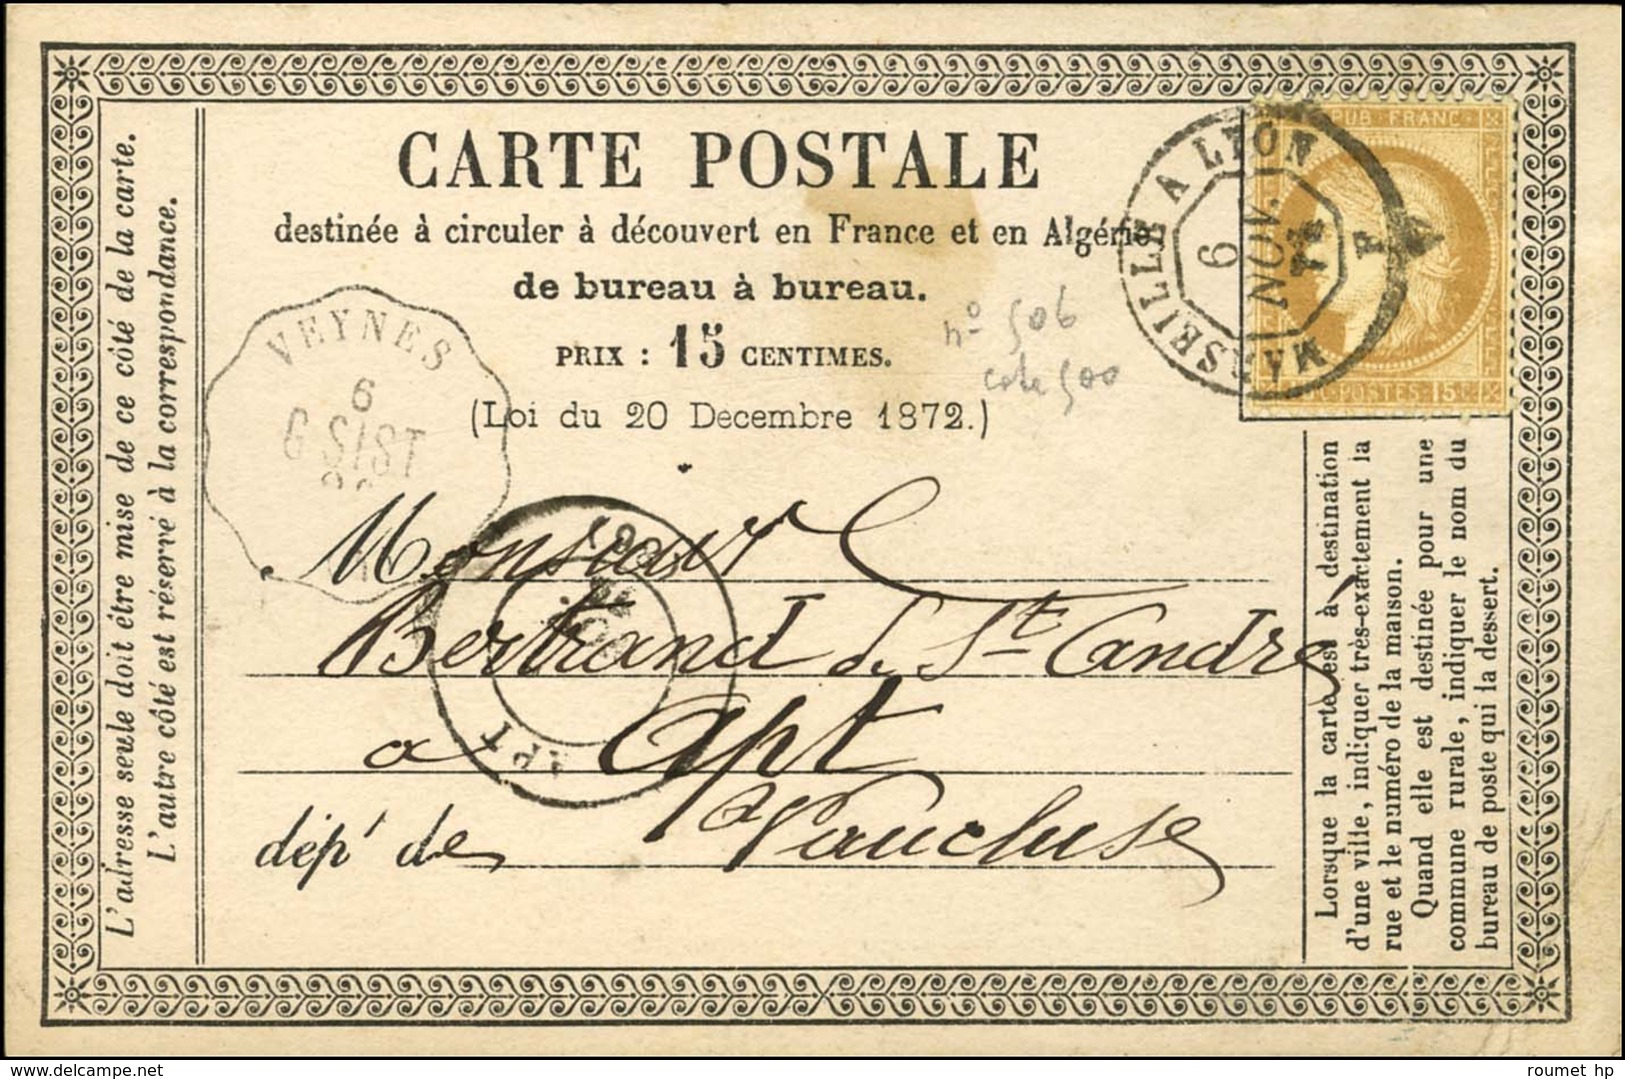 CARTE POSTALE
destinée à circuler à découvert en France et en Algérie
de bureau à bureau.
PRIX : 15 CENTIMES.
(Loi du 20 Decembre 1872.)
L'adresse seule doit être mise de ce côté de la carte.
L'autre côté est réservé à la correspondance.
REPUB · FRANC ·
POSTES · 15 C.
MARSEILLE A LYON
6
NOV.
74
nº 506
cote 500
VEYNES
6
G SIST
Monsieur
Bertrand de St André
a Apt
dép' de Vaucluse
APT
Lorsque la carte est à destination
d'une ville, indiquer très-exactement la
rue et le numéro de la maison.
Quand elle est destinée pour une
commune rurale, indiquer le nom du
bureau de poste qui la dessert.
roumet hp